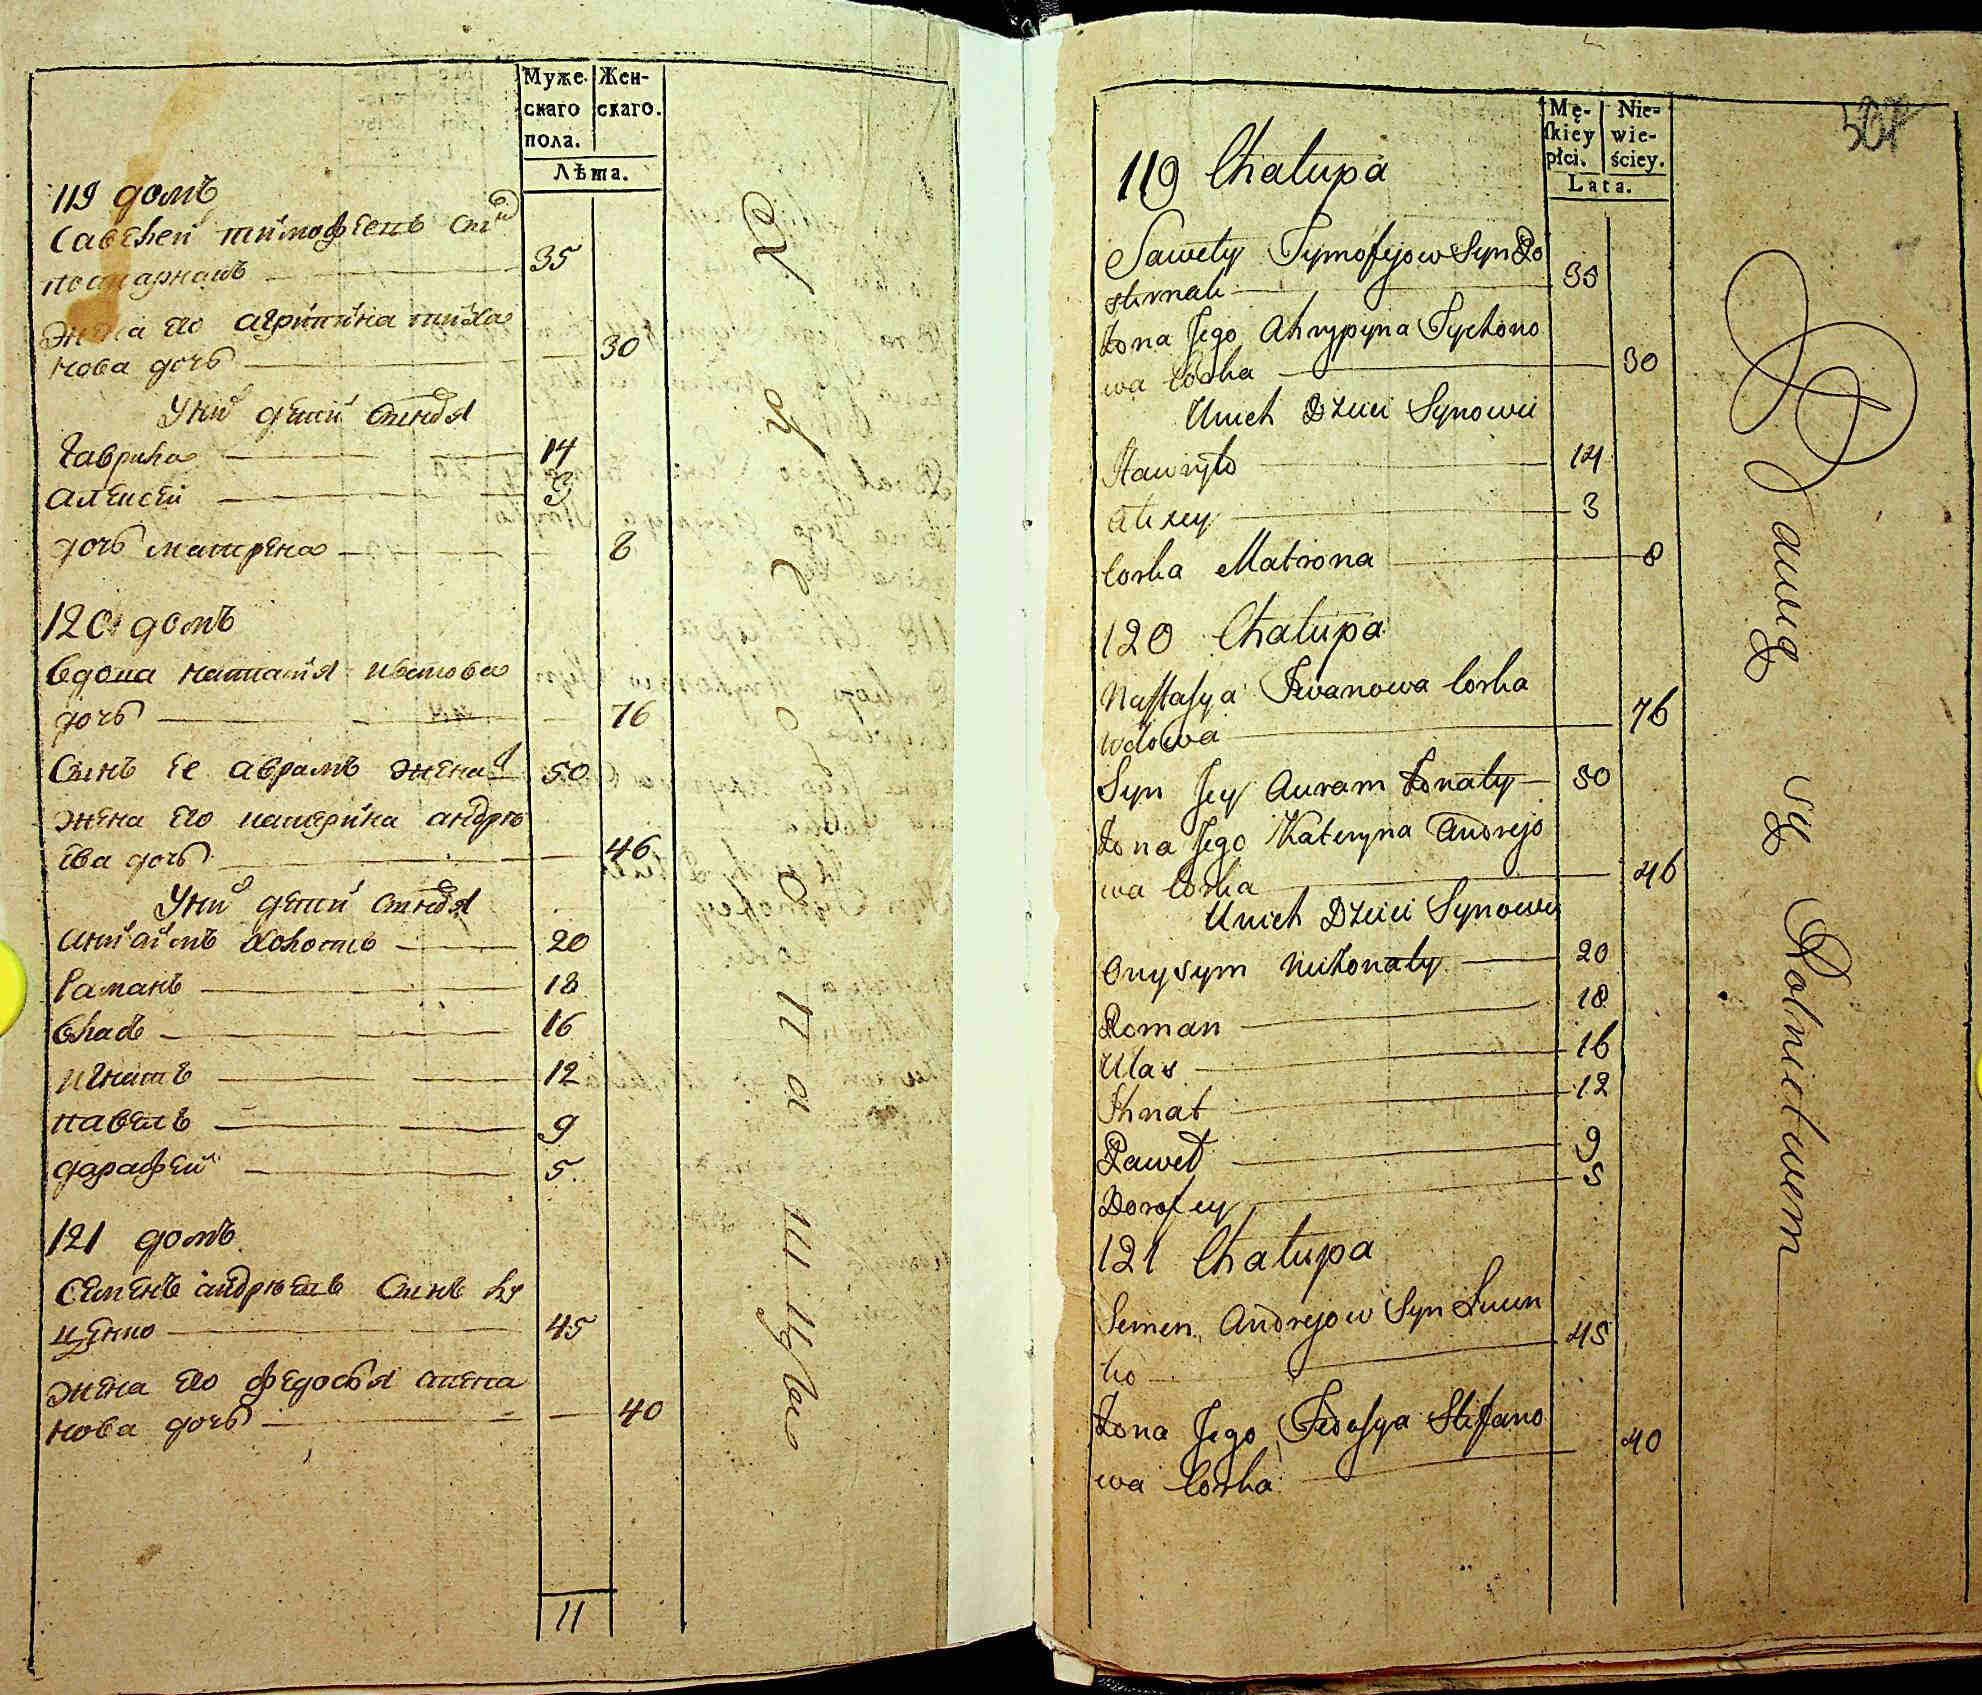 Муже-
скаго
пола.
Жен-
скаго.
Лѣта.
119 домъ
Савелей тимофеевъ сынъ
постарнакъ 35
жена его агрипина тиха
нова дочь 30
У них детей сыновя
Гаврила 14
алексей 3
дочь матрена 8
120 домъ
вдова настасия иванова
дочь 76
Сынъ ее аврамъ женат 50
жена его катерина андре
ева дочь 46
У них детей сыновя
анисимъ холостъ 20
Раманъ 18
власъ 16
игнатъ 12
павелъ 9
дарафей 5
121 домъ
Семенъ андреевъ сынъ лу
ценко 45
жена его федосья степа
нова дочь 40
11
Mę-
skiey
płci.
Nie=
wie-
ściey.
Lata.
119 Chałupa
Sawely Tymofejow Syn Po
starnak 35
Żona Jego Ahrypyna Tychono
wa Corka 30
U nich Dzieci Synowie
Hawryło 14
Alexey 3
Corka Matrona 8
120 Chałupa
Nastasya Iwanowa Corka
wdowa 76
Syn Jey Auram Żonaty 50
Żona Jego Kateryna Andrejo
wa Corka 46
U nich Dzieci Synowie
Onysym nieżonaty 20
Roman 18
Ułas 16
Ihnat 12
Paweł 9
Dorofey 5
121 Chałupa
Semen Andrejow Syn Łucen
ko 45
Żona Jego Fedosya Stefano
wa Corka 40
Bawią się Rolnictwem